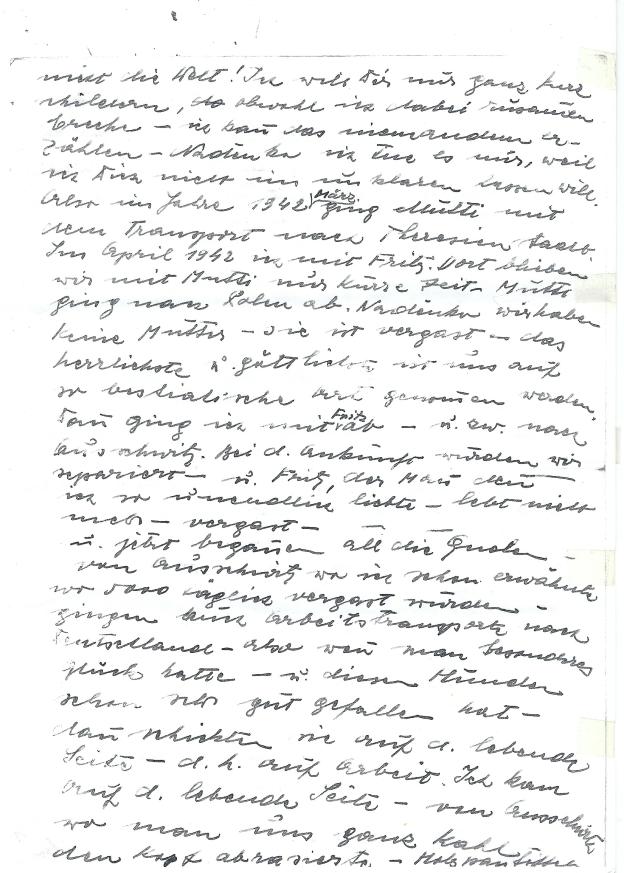 nicht die Welt! Ich will Dir nur ganz kurz
schildern, da obwohl ich dabei zusamen
breche – ich kan das niemandem er-
zählen – Nadinka ich tue es nur, weil
ich Dich nicht im unklaren lassen will.
Also im Jahre 1942 März ging Mutti mit
dem Transport nach Theresienstadt.
Im April 1942 ich mit Fritz. Dort blieben
wir mit Mutti nur kurze Zeit – Mutti
ging nach Polen ab. Nadinka wir haben
keine Mutter – sie ist vergast – das
herrlichste u. göttlichste ist uns auf
so bestialische Art genomen worden.
Dan ging ich mit Fritz ab – u. zw. nach
Ausschwitz. Bei d. Ankunft wurden wir
separiert – u. Fritz, der Man den
ich so unendlich liebte – lebt nicht
mehr – vergast –
u. jetzt beganen all die Qualen –
von Ausschwitz wo ich schon erwähnte
wo 5000 täglich vergast wurden –
gingen Arbeitstransporte nach
Deutschland – also wen man besonderes
Glück hatte – u. diesen Hunden
schon sehr gut gefallen hat –
dan schickten sie auf d. lebende
Seite – d. h. auf Arbeit. Ich kam
auf d. lebende Seite – von Ausschwitz
wo man uns ganz kahl
den Kopf abrasierte. – Holzpantoffeln